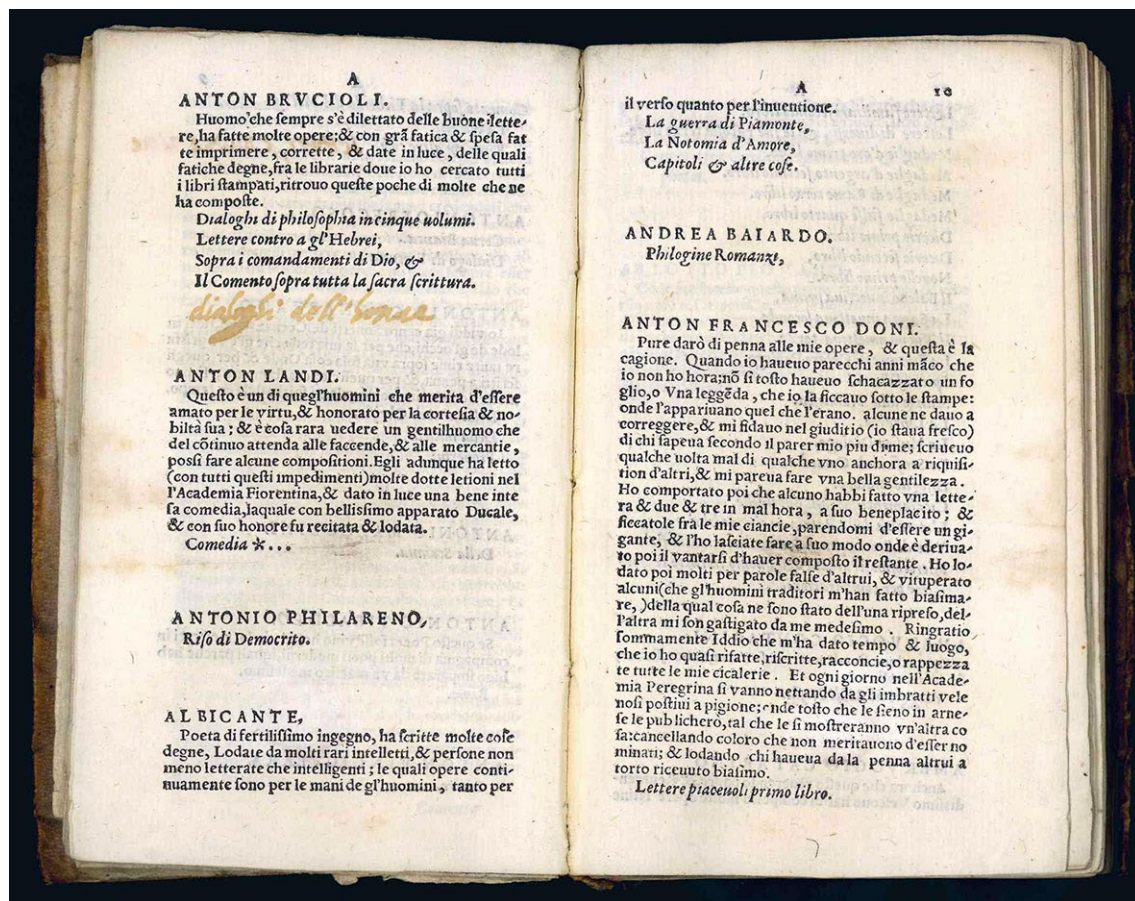 A
ANTON BRVCIOLI.
Huomo che sempre s'è dilettato delle buone lette-
re, ha fatte molte opere: & con grã fatica & spesa fat
te imprimere, corrette, & date in luce, delle quali
fatiche degne, fra le librarie doue io ho cercato tutti
i libri stampati, ritrouo queste poche di molte che ne
ha composte.
Dialoghi di philosophia in cinque uolumi.
Lettere contro a gl'Hebrei,
Sopra i comandamenti di Dio, &
Il Comento sopra tutta la sacra scrittura.
dialoghi dell'
ANTON LANDI.
Questo è un di quegl'huomini che merita d'essere
amato per le virtu, & honorato per la cortesia & no-
biltà sua; & è cosa rara uedere un gentilhuomo che
del cõtinuo attenda alle faccende, & alle mercantie,
possi fare alcune compositioni. Egli adunque ha letto
(con tutti questi impedimenti) molte dotte letioni nel
l'Academia Fiorentina, & dato in luce una bene inte
sa comedia, laquale con bellissimo apparato Ducale,
& con suo honore fu recitata & lodata.
Comedia *...
ANTONIO PHILARENO,
Riso di Democrito.
ALBICANTE,
Poeta di fertilissimo ingegno, ha scritte molte cose
degne, Lodate da molti rari intelletti, & persone non
meno letterate che intelligenti; le quali opere conti-
nuamente sono per le mani de gl'huomini, tanto per
A 10
il verso quanto per l'inuentione.
La guerra di Piamonte,
La Notomia d'Amore,
Capitoli & altre cose.
ANDREA BAIARDO.
Philogine Romanzi,
ANTON FRANCESCO DONI.
Pure darò di penna alle mie opere, & questa è la
cagione. Quando io haueuo parecchi anni mãco che
io non ho hora; nõ si tosto haueuo schacazzato un fo
glio, o Vna leggẽda, che io la ficcauo sotto le stampe:
onde l'appariuano quel che l'erano. alcune ne dauo a
correggere, & mi fidauo nel giuditio (io staua fresco)
di chi sapeua secondo il parer mio piu di me; scriueuo
qualche uolta mal di qualche vno anchora a riquisi-
tion d'altri, & mi pareua fare vna bella gentilezza.
Ho comportato poi che alcuno habbi fatto vna lette-
ra & due & tre in mal hora, a suo beneplacito; &
ficcatole fra le mie ciancie, parendomi d'essere un gi-
gante, & l'ho lasciate fare a suo modo onde è deriua-
to poi il vantarsi d'hauer composto il restante. Ho lo-
dato poi molti per parole false d'altrui, & vituperato
alcuni (che gl'huomini traditori m'han fatto biasima-
re,) della qual cosa ne sono stato dell'una ripreso, del-
l'altra mi son gastigato da me medesimo. Ringratio
sommamente Iddio che m'ha dato tempo & luogo,
che io ho quasi rifatte, riscritte, racconcie, o rappezza
te tutte le mie cicalerie. Et ogni giorno nell'Acade-
mia Peregrina si vanno nettando da gli imbratti vele
nosi postiui a pigione; onde tosto che le sieno in arne-
se le publicherò, tal che le si mostreranno vn'altra co
sa: cancellando coloro che non meritauono d'esser no
minati; & lodando chi haueua da la penna altrui a
torto riceuuto biasimo.
Lettere piaceuoli primo libro.